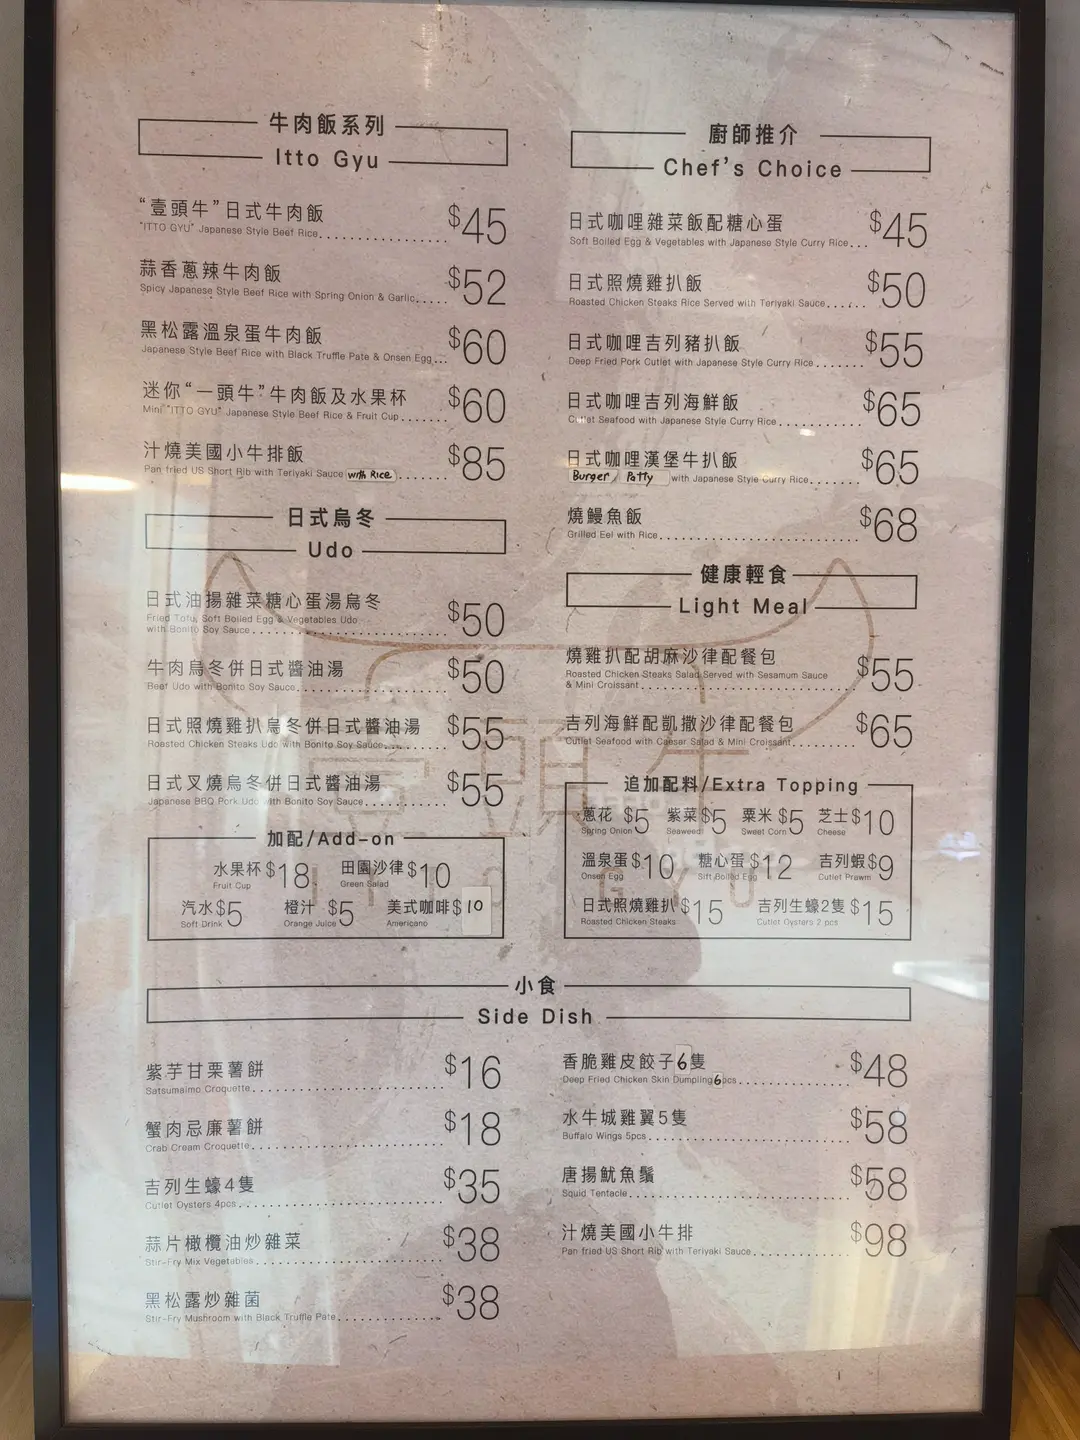 牛肉飯系列
Itto Gyu
“壹頭牛”日式牛肉飯
"ITTO GYU" Japanese Style Beef Rice $45
蒜香蔥辣牛肉飯
Spicy Japanese Style Beef Rice with Spring Onion & Garlic $52
黑松露溫泉蛋牛肉飯
Japanese Style Beef Rice with Black Truffle Pate & Onsen Egg $60
迷你“一頭牛”牛肉飯及水果杯
Mini "ITTO GYU" Japanese Style Beef Rice & Fruit Cup $60
汁燒美國小牛排飯
Pan fried US Short Rib with Teriyaki Sauce with Rice $85
日式烏冬
Udo
日式油揚雜菜糖心蛋湯烏冬
Fried Tofu, Soft Boiled Egg & Vegetables Udo
with Bonito Soy Sauce $50
牛肉烏冬併日式醬油湯
Beef Udo with Bonito Soy Sauce $50
日式照燒雞扒烏冬併日式醬油湯
Roasted Chicken Steaks Udo with Bonito Soy Sauce $55
日式叉燒烏冬併日式醬油湯
Japanese BBQ Pork Udo with Bonito Soy Sauce $55
加配/Add-on
水果杯 $18 田園沙律 $10
Fruit Cup Green Salad
汽水 $5 橙汁 $5 美式咖啡 $10
Soft Drink Orange Juice Americano
廚師推介
Chef's Choice
日式咖哩雜菜飯配糖心蛋
Soft Boiled Egg & Vegetables with Japanese Style Curry Rice $45
日式照燒雞扒飯
Roasted Chicken Steaks Rice Served with Teriyaki Sauce $50
日式咖哩吉列豬扒飯
Deep Fried Pork Cutlet with Japanese Style Curry Rice $55
日式咖哩吉列海鮮飯
Cutlet Seafood with Japanese Style Curry Rice $65
日式咖哩漢堡牛扒飯
Burger Patty with Japanese Style Curry Rice $65
燒鰻魚飯
Grilled Eel with Rice $68
健康輕食
Light Meal
燒雞扒配胡麻沙律配餐包
Roasted Chicken Steaks Salad Served with Sesamum Sauce
& Mini Croissant $55
吉列海鮮配凱撒沙律配餐包
Cutlet Seafood with Caesar Salad & Mini Croissant $65
追加配料/Extra Topping
蔥花 $5 紫菜 $5 粟米 $5 芝士 $10
Spring Onion Seaweed Sweet Corn Cheese
溫泉蛋 $10 糖心蛋 $12 吉列蝦 $9
Onsen Egg Sift Boiled Egg Cutlet Prawm
日式照燒雞扒 $15 吉列生蠔2隻 $15
Roasted Chicken Steaks Cutlet Oysters 2 pcs
壹頭牛
ITTO GYU
小食
Side Dish
紫芋甘栗薯餅
Satsumaimo Croquette $16
蟹肉忌廉薯餅
Crab Cream Croquette $18
吉列生蠔4隻
Cutlet Oysters 4pcs $35
蒜片橄欖油炒雜菜
Stir-Fry Mix Vegetables $38
黑松露炒雜菌
Stir-Fry Mushroom with Black Truffle Pate $38
香脆雞皮餃子6隻
Deep Fried Chicken Skin Dumpling 6pcs $48
水牛城雞翼5隻
Buffalo Wings 5pcs $58
唐揚魷魚鬚
Squid Tentacle $58
汁燒美國小牛排
Pan fried US Short Rib with Teriyaki Sauce $98